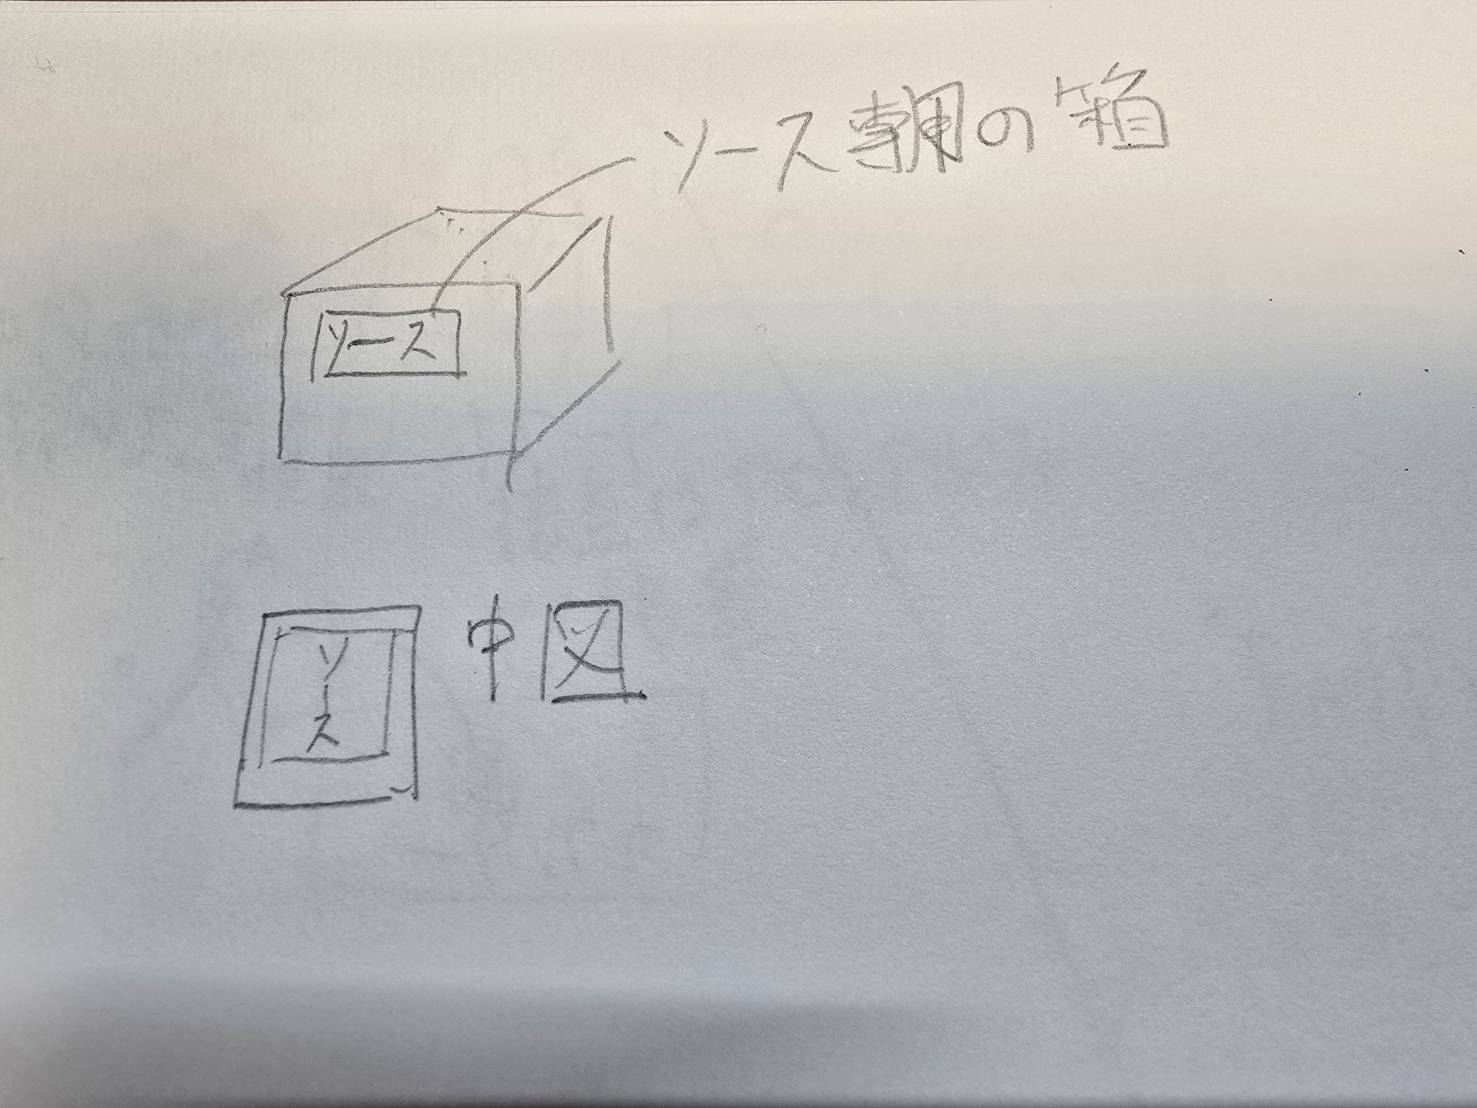 ソース専用の箱
ソース
ソース
中図